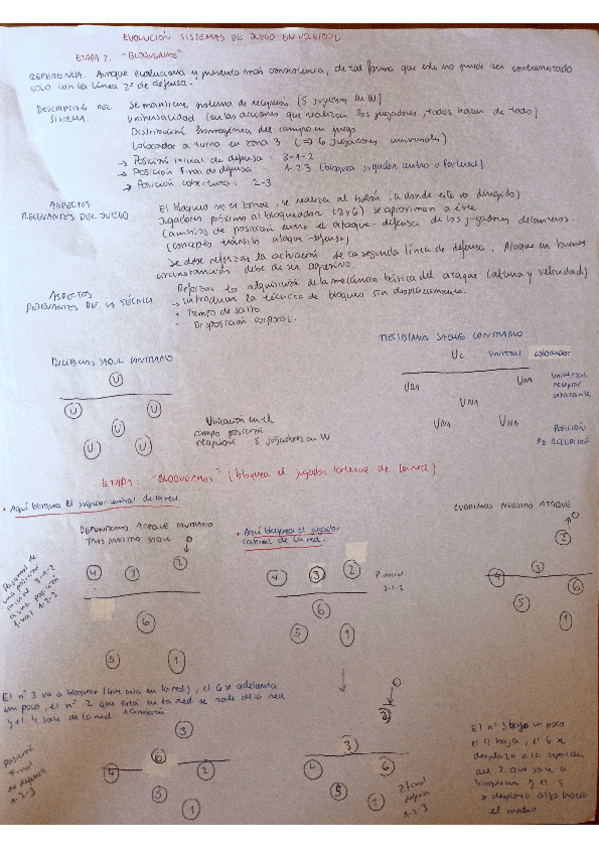 EVOLUCIÓN SISTEMAS DE JUEGO EN VOLEIBOL
ETAPA 2. "BLOQUEAMOS"
REFERENCIA. Aunque evoluciona y presenta más consistencia, de tal forma que este no puede ser contrarrestado
solo con la línea 2ª de defensa.
DESCRIPCIÓN DEL SISTEMA.
Se mantiene sistema de recepción (5 jugadores en W)
Universalidad (en las acciones que realizan los jugadores, todos hacen de todo)
Distribución homogénea del campo en juego
Colocador a turno en zona 3 (=> 6 jugadores universales)
-> Posición inicial de defensa: 3-1-2
-> Posición final de defensa 1-2-3 (bloquea jugador centro o lateral)
-> Posición cobertura: 2-3
ASPECTOS RELEVANTES DEL JUEGO
El bloqueo no es zonal, se realiza al balón (a donde este va dirigido)
Jugadores próximo al bloqueador se aproximan a éste
Cambios de posición entre el ataque-defensa de los jugadores delanteros.
(concepto tránsito ataque-defensa)
Se debe reforzar la activación de la segunda línea de defensa. Ataque en buenas
circunstancias debe de ser agresivo.
ASPECTOS RELEVANTES DE LA TÉCNICA
Reforzar la adquisición de la mecánica básica del ataque (altura y velocidad)
-> introducir la técnica de bloqueo sin desplazamiento.
• Tiempo de salto
• Disposición corporal.
RECIBIMOS SAQUE CONTRARIO
U
U U
U
U U
Ubicación en el
campo posición
recepción 5 jugadores en W
RECIBIMOS SAQUE CONTRARIO
Uc universal colocador
URA URA
UNA
UNA UNA
universal
receptor
atacante
POSICIÓN
DE RECEPCIÓN
ETAPA: "BLOQUEAMOS" (bloquea el jugador lateral de la red)
• Aquí bloquea el jugador central de la red.
DEFENDEMOS ATAQUE CONTRARIO
TRAS NUESTRO SAQUE
Pasamos de
una posición
inicial 3-1-2
a una posición
final 1-2-3
4 3 2
6
5 1
• Aquí bloquea el jugador
lateral de la red.
4 3 2
6
5 1
P. inicial
3-1-2
CUBRIMOS NUESTRO ATAQUE
4 3
5 6
1
El nº 3 va a bloquear (que está en la red), el 6 se adelanta
un poco, el nº 2 que está en la red se sale de la red
y el 4 sale de la red también
3
6
4 2
5
1
Posición
final
de defensa
1-2-3
2
3
4 6
5
1
P. final
defensa
1-2-3
El nº 3 baja un poco
el 4 baja, el 6 se
desplaza a la espalda
del 2 que sale a
bloquear y el 5
se desplaza algo hacia
el medio